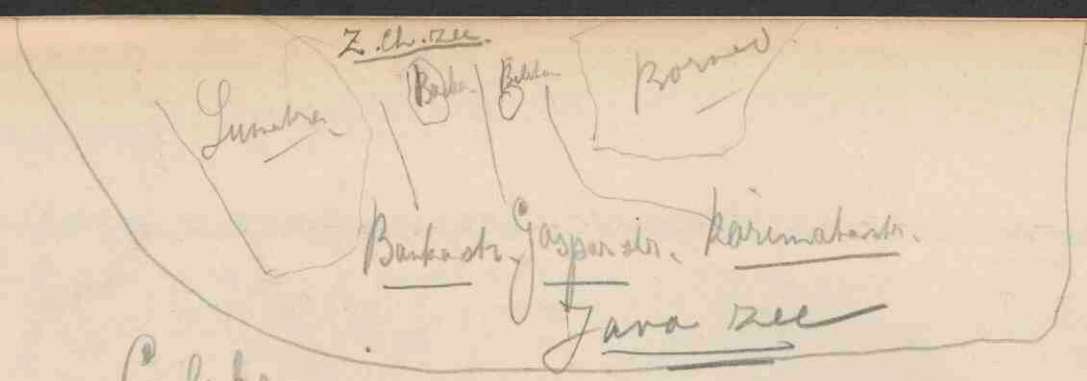 Z.Ch.zee.
Sumatra
Banka
Billiton
Borneo
Bankastr. Gasparstr. Karimatastr.
Java zee